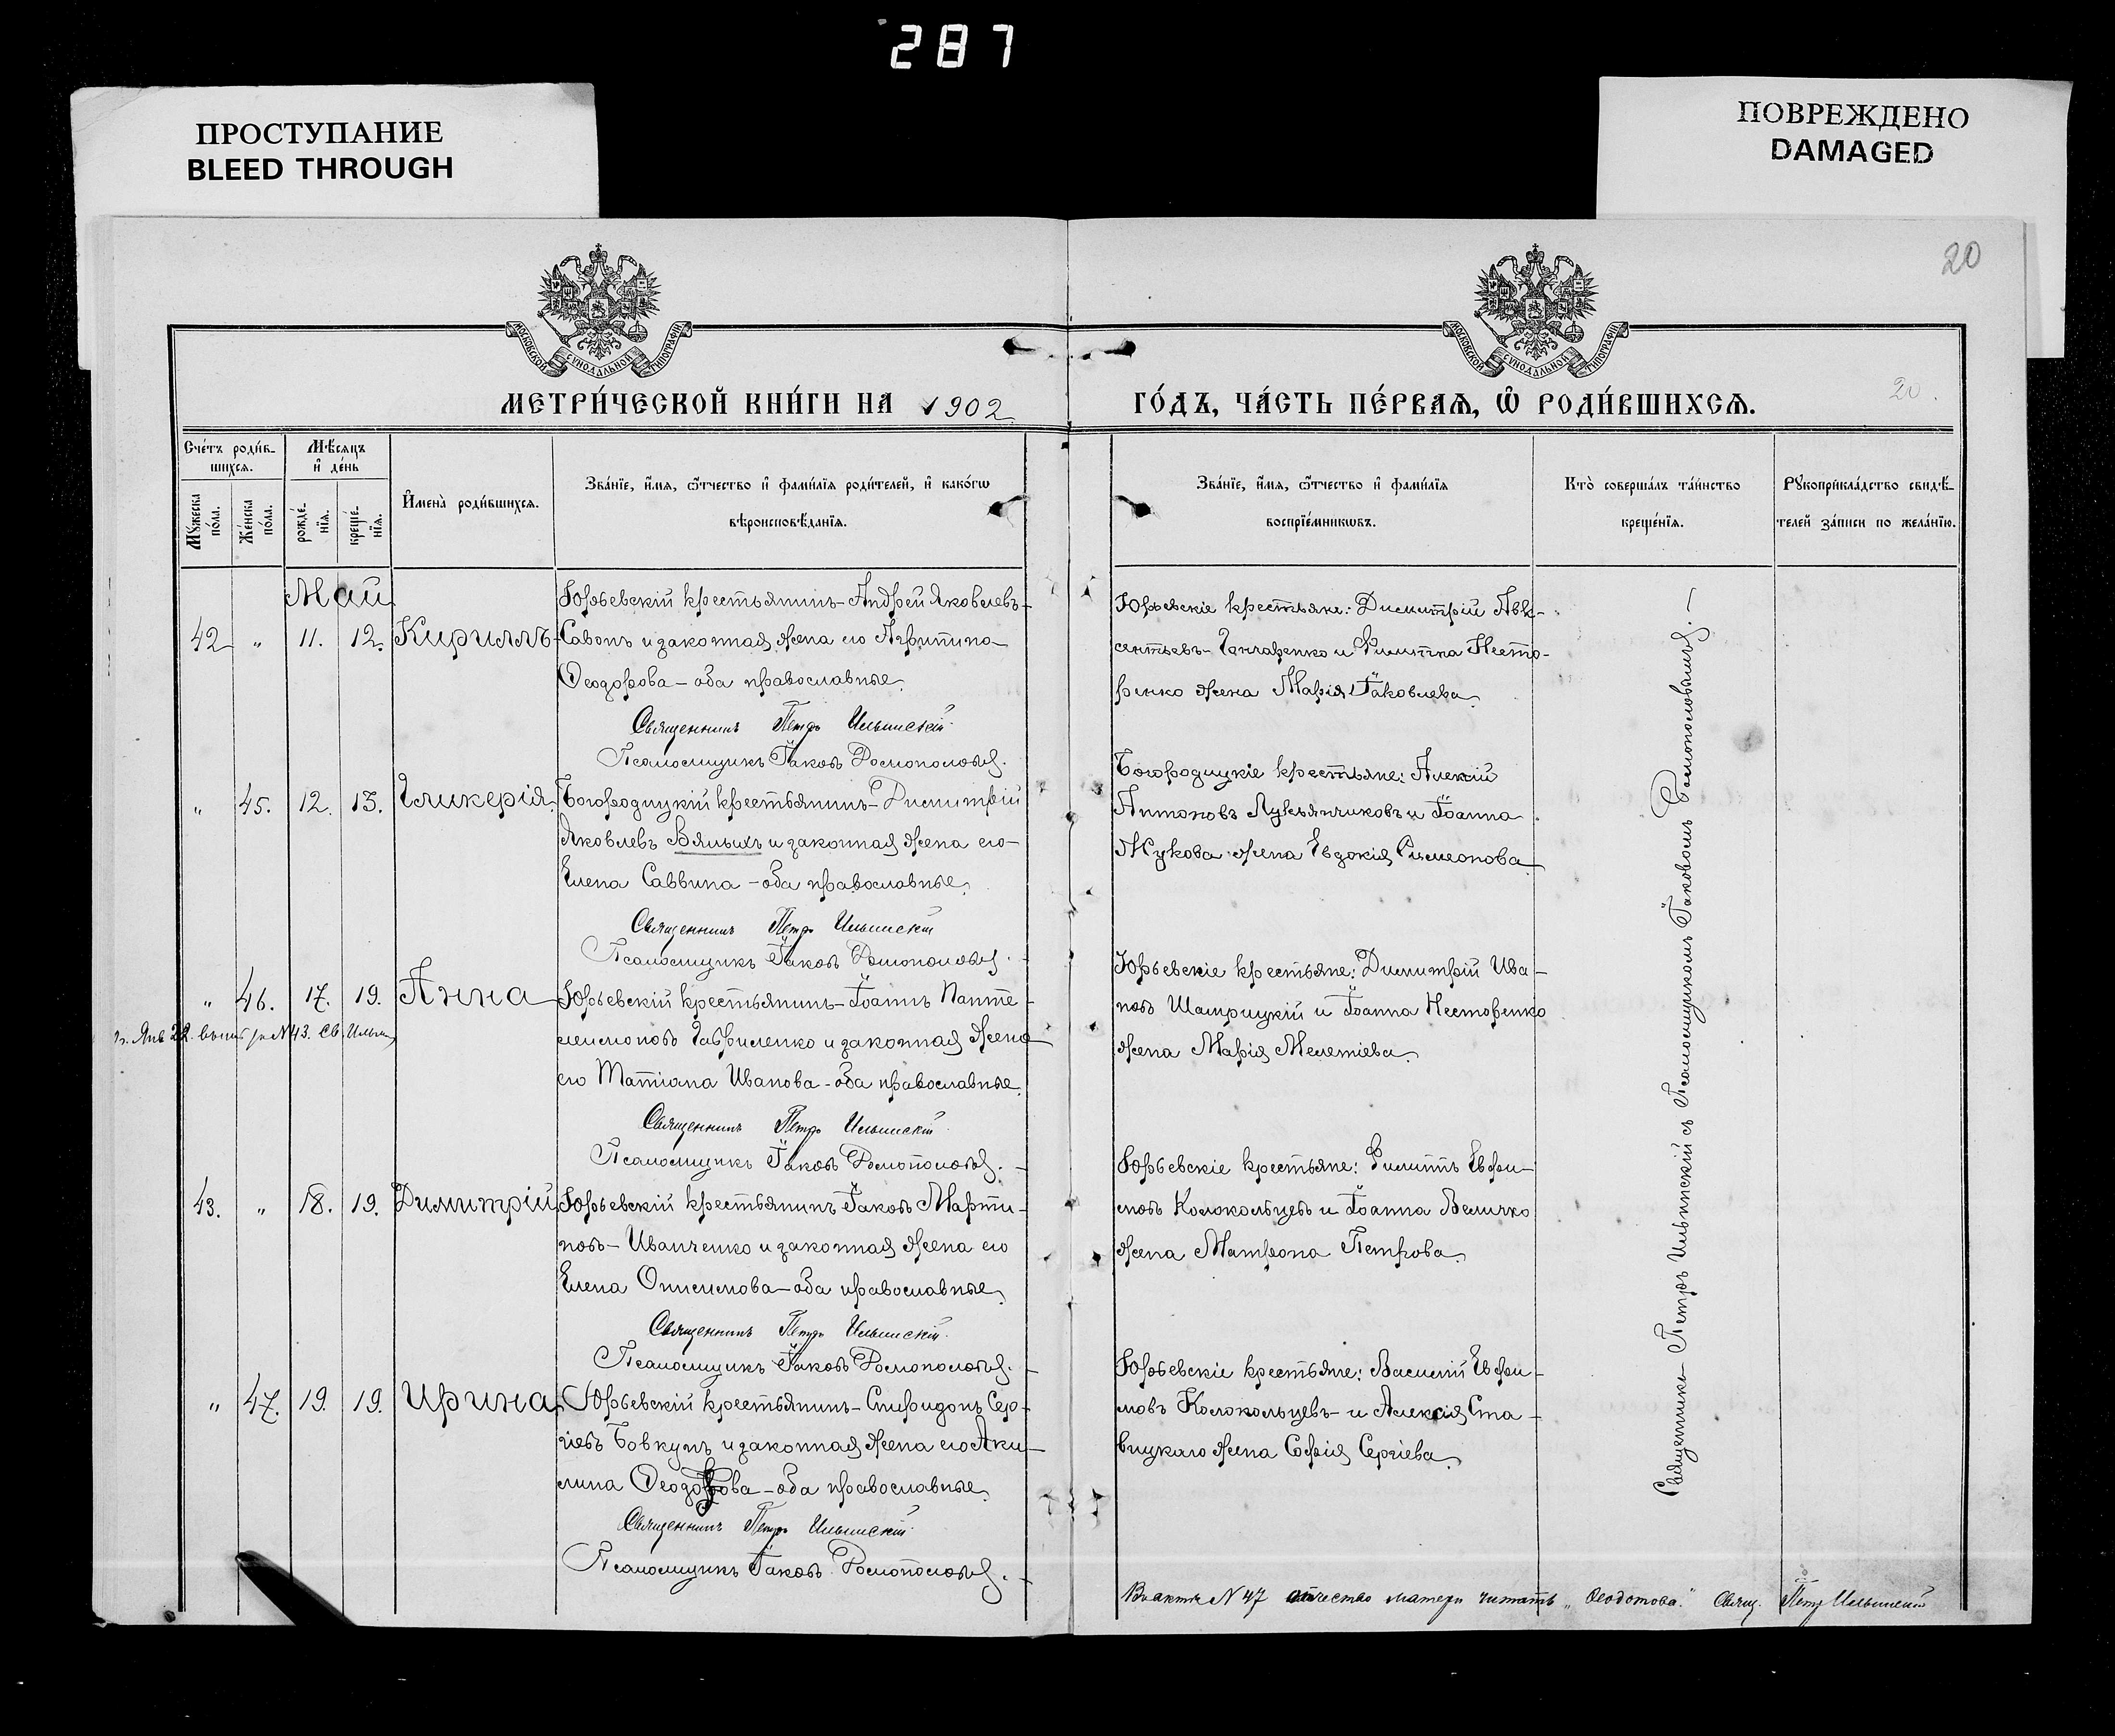 287
ПРОСТУПАНИЕ
BLEED THROUGH
ПОВРЕЖДЕНО
DAMAGED
20
МОСКОВСКОЙ СУНОДАЛЬНОЙ ТИПОГРАФІИ
МОСКОВСКОЙ СУНОДАЛЬНОЙ ТИПОГРАФІИ
МЕТРИ́ЧЕСКОЙ КНИ́ГИ НА 1902
ГО́ДЪ, ЧА́СТЬ ПЕ́РВАѦ, Ѡ҆ РОДИ́ВШИХСѦ.
20.
Сче́тъ роди́в-
шихсѧ.
Мꙋжеска по́ла.
Же́нска по́ла.
Мѣ́сяцъ
и҆ де́нь
рожде́-нїѧ.
креще́-нїѧ.
И҆мена̀ роди́вшихсѧ.
Зва́нїе, и҆́мѧ, ѻ҆́тчество и҆ фами́лїѧ роди́телей, и҆ како́гѡ
вѣроисповѣ́данїѧ.
Зва́нїе, и҆́мѧ, ѻ҆́тчество и҆ фами́лїѧ
воспрїе́мникѡвъ.
Кто̀ соверша́лъ та́инство
креще́нїѧ.
Рꙋкоприкла́дство свидѣ́-
телей за́писи по жела́нїю.
Май
42 " 11. 12. Кириллъ
Юрьевскій крестьянинъ Андрей Яковлевъ
Савонъ и законная жена его Агрипина
Ѳеодорова - оба православные.
Священникъ Петръ Ильинскій
Псаломщикъ Іаковъ
Юрьевскіе крестьяне: Димитрій Авк-
сентьевъ Гончаренко и Филиппа Несто-
ренко жена Марія Іаковлева.
" 45. 12. 13. Гликерія
Богородицкій крестьянинъ Димитрій
Яковлевъ Вялыхъ и законная жена его
Елена Саввина - оба православные.
Священникъ Петръ Ильинскій
Псаломщикъ Іаковъ
Богородицкіе крестьяне: Алексій
Антоновъ Лукьянчиковъ и Іоанна
Жукова жена Евдокія Симеонова
" 46. 17. 19. Анна
Юрьевскій крестьянинъ Іоаннъ Панте-
леимоновъ Гавриленко и законная жена
его Татіана Иванова - оба православные.
Священникъ Петръ Ильинскій
Псаломщикъ Іаковъ
Юрьевскіе крестьяне: Димитрій Ива-
новъ Шатрицкій и Іоанна Несторенко
жена Марія Мелетіева.
43. " 18. 19. Димитрій
Юрьевскій крестьянинъ Іаковъ Марти-
новъ - Иванченко и законная жена его
Елена Онисимова - оба православные.
Священникъ Петръ Ильинскій
Псаломщикъ Іаковъ
Юрьевскіе крестьяне: Филиппъ Евфи-
мовъ Колокольцевъ и Іоанна Величко
жена Матрона Петрова.
" 47. 19. 19. Ирина
Юрьевскій крестьянинъ - Спиридонъ Сер-
гіевъ Бовкунъ и законная жена его Аки-
лина Ѳеодорова - оба православные.
Священникъ Петръ Ильинскій
Псаломщикъ Іаковъ
Юрьевскіе крестьяне: Василій Евфи-
мовъ Колокольцевъ - и Алексія Ста-
вицкаго жена Софія Сергіева.
Священникъ Петръ Ильинскій съ Псаломщикомъ Іаковомъ
Въ актѣ N 47 отчество матери читать „Ѳеодотова." Свящ. Петръ Ильинскій